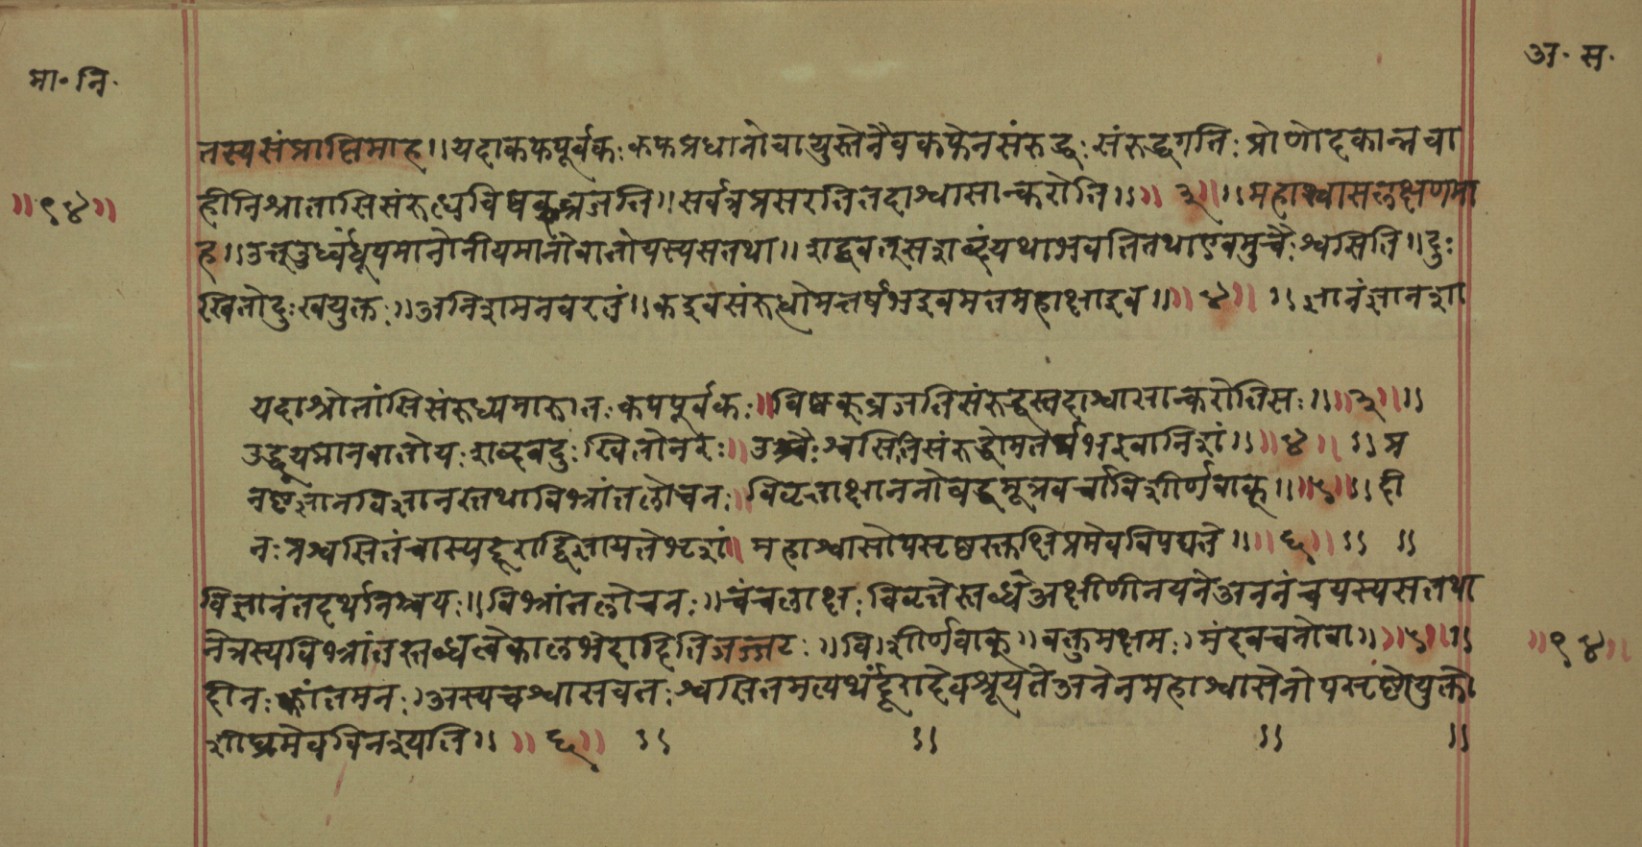 मा॰ नि॰
अ॰ स॰
तस्यसंप्राप्तिमाह॥ यदाकफपूर्वकः कफप्रधानोवायुस्तेनैवकफेनसंरुद्धः संरुद्धगतिः प्राणोदकान्नवा
॥९४॥
हीनिश्रोतासिसंरुध्यविष्वक्व्रजति॥ सर्वत्रप्रसरतितदाश्वासान्करोति॥॥ ३॥॥ महाश्वासलक्षणमा
ह॥ उत्तूउर्ध्वंधूयमानोनीयमानोवातोयस्यसतथा॥ शद्ववत्सशब्दंयथाभवतितथाएवमुच्चैःश्वसिति॥ दुः
खितोदुःखयुक्तः॥ अनिशमनवरतं॥ कइवसंरुधोमत्तर्षभइवमत्तमहोक्षाइव॥॥ ४॥ ॥ ज्ञानंज्ञानशा
यदाश्रोतांसिसंरुध्यमारुतः कफपूर्वकः॥ विष्वक्व्रजतिसंरुद्धस्तदाश्वासान्करोतिसः॥॥ ३॥॥
उद्धूयमानवातोयः शब्दवदुःखितोनरः॥ उच्चैःश्वसितिसंरुद्धोमत्तर्षभइवानिशं॥॥ ४॥ ॥ प्र
नष्टज्ञानविज्ञानस्तथाविभ्रांतलोचनः॥ विवृताक्षाननोबद्धमूत्रवर्चाविशीर्णवाक्॥॥ ५॥॥ दी
नः प्रश्वसितंचास्यदूराद्विज्ञायतेभृशं॥ महाश्वासोपसृष्टस्तक्षिप्रमेवविपद्यते॥ ॥ ६॥ ॥ ॥
विज्ञानंतदर्थनिश्चयः॥ विभ्रांतलोचनः॥ चंचलाक्षः विवृतेस्तब्धेअक्षीणीनयनेअननंचयस्यसतथा
नेत्रस्यविभ्रांतस्तब्धत्वेकालभेदादितिजज्जटः॥ विशीर्णवाक्॥ वक्तुमक्षमः। मंदवचनोवा॥ ॥ ५॥॥
॥९४॥
दीनः क्लांतमनः। अस्यचश्वासवतः श्वसितमत्यर्थंदूरादेवश्रूयतेअनेनमहाश्वासेनोपसृष्टोयुक्तो
शीघ्रमेवविनश्यति॥ ॥ ६॥ ॥ ॥ ॥ ॥